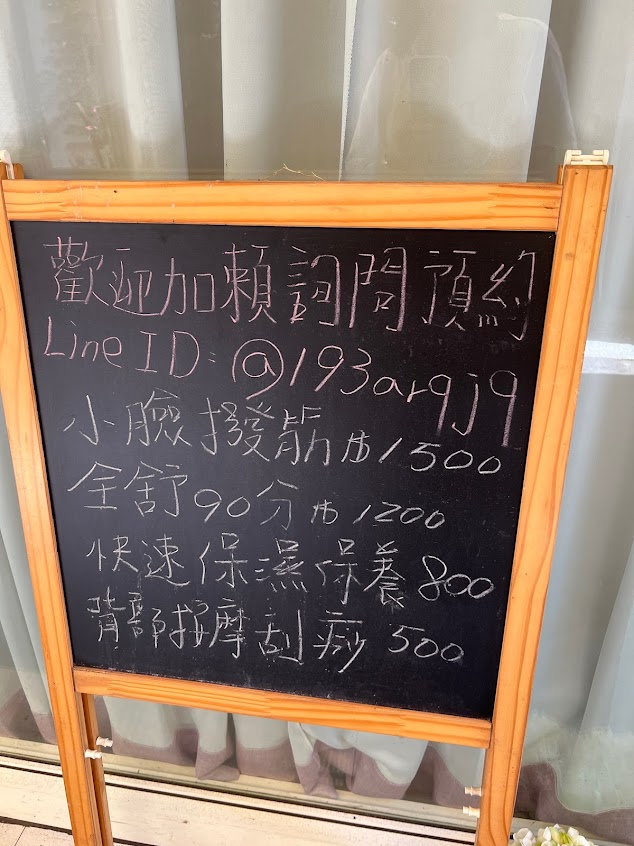 歡迎加賴詢問預約
Line ID:@193arqjq
小臉撥筋$1500
全舒90分$1200
快速保濕保養800
背部按摩刮痧500